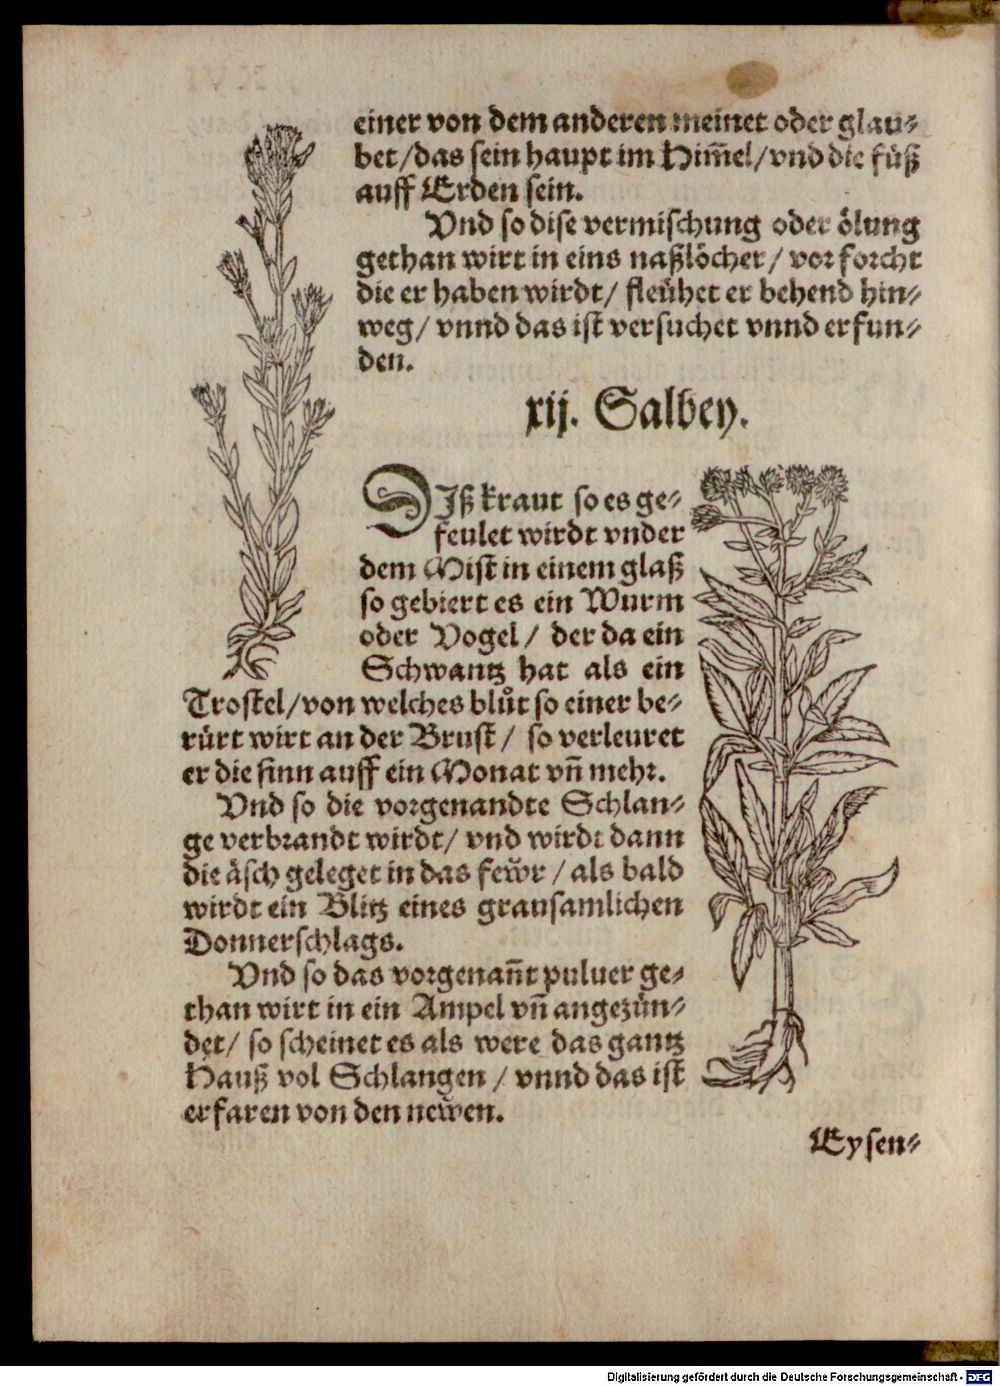 einer von dem anderen meinet oder glau⸗
bet/das sein haupt im Him̃el/vnd die fuͤß
auff Erden sein.
Vnd so dise vermischung oder oͤlung
gethan wirt in eins naßloͤcher/ vor forcht
die er haben wirdt/ fleuͤhet er behend hin⸗
weg/ vnnd das ist versuchet vnnd erfun⸗
den.
xij. Salbey.
DIß kraut so es ge⸗
feulet wirdt vnder
dem Mist in einem glaß
so gebiert es ein Wurm
oder Vogel/ der da ein
Schwantz hat als ein
Trostel/von welches bluͦt so einer be⸗
ruͤrt wirt an der Brust/ so verleuret
er die sinn auff ein Monat vñ mehr.
Vnd so die vorgenandte Schlan⸗
ge verbrandt wirdt/ vnd wirdt dann
die aͤsch geleget in das feẅr/ als bald
wirdt ein Blitz eines grausamlichen
Donnerschlags.
Vnd so das vorgenañt puluer ge⸗
than wirt in ein Ampel vñ angezuͤn⸗
det/ so scheinet es als were das gantz
Hauß vol Schlangen/ vnnd das ist
erfaren von den neẅen.
Eysen⸗
Digitalisierung gefördert durch die Deutsche Forschungsgemeinschaft - DFG